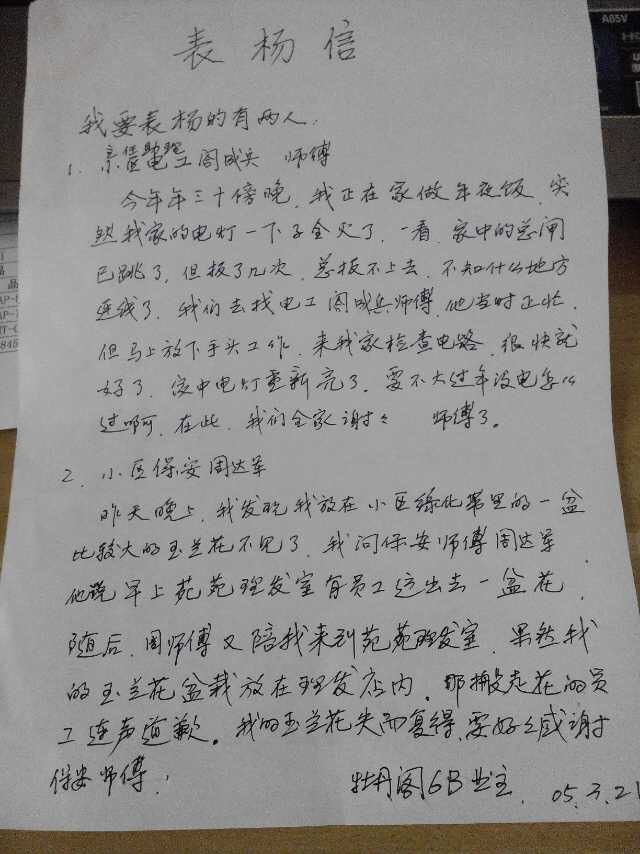 表杨信
我要表杨的有两人.
1. 电工阁成兵 师傅
今年年三十傍晚,我正在家做年夜饭,突
然我家的电灯一下子全灭了,一看,家中的总闸
已跳了,但扳了几次,总扳不上去,不知什么地方
连线了,我们去找电工阁成兵师傅,他当时正忙,
但马上放下手头工作,来我家检查电路,很快就
好了,家中电灯重新亮了,要不大过年没电怎么
过啊,在此,我们全家谢々 师傅了。
2. 小区保安周达军
昨天晚上,我发现我放在小区绿化带里的一盆
比较大的玉兰花不见了,我问保安师傅周达军
他说早上苑苑理发室有员工运出去一盆花,
随后,周师傅又陪我来到苑苑理发室,果然我
的玉兰花盆栽放在理发店内,那搬走花的员
工连声道歉。我的玉兰花失而复得,要好々感谢
保安师傅!
牡丹阁6B业主. 05.3.21
A85V